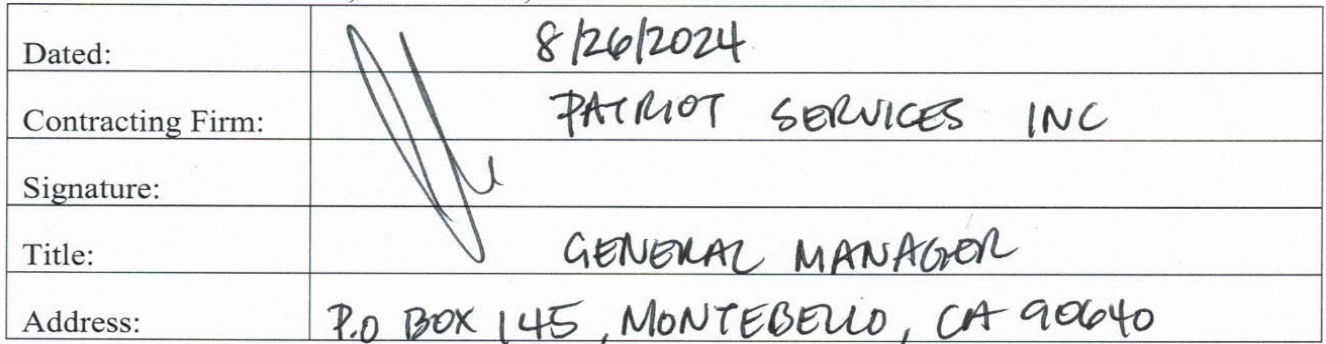 Dated: 8/26/2024
Contracting Firm: PATRIOT SERVICES INC
Signature:
Title: GENERAL MANAGER
Address: P.O BOX 145, MONTEBELLO, CA 90640